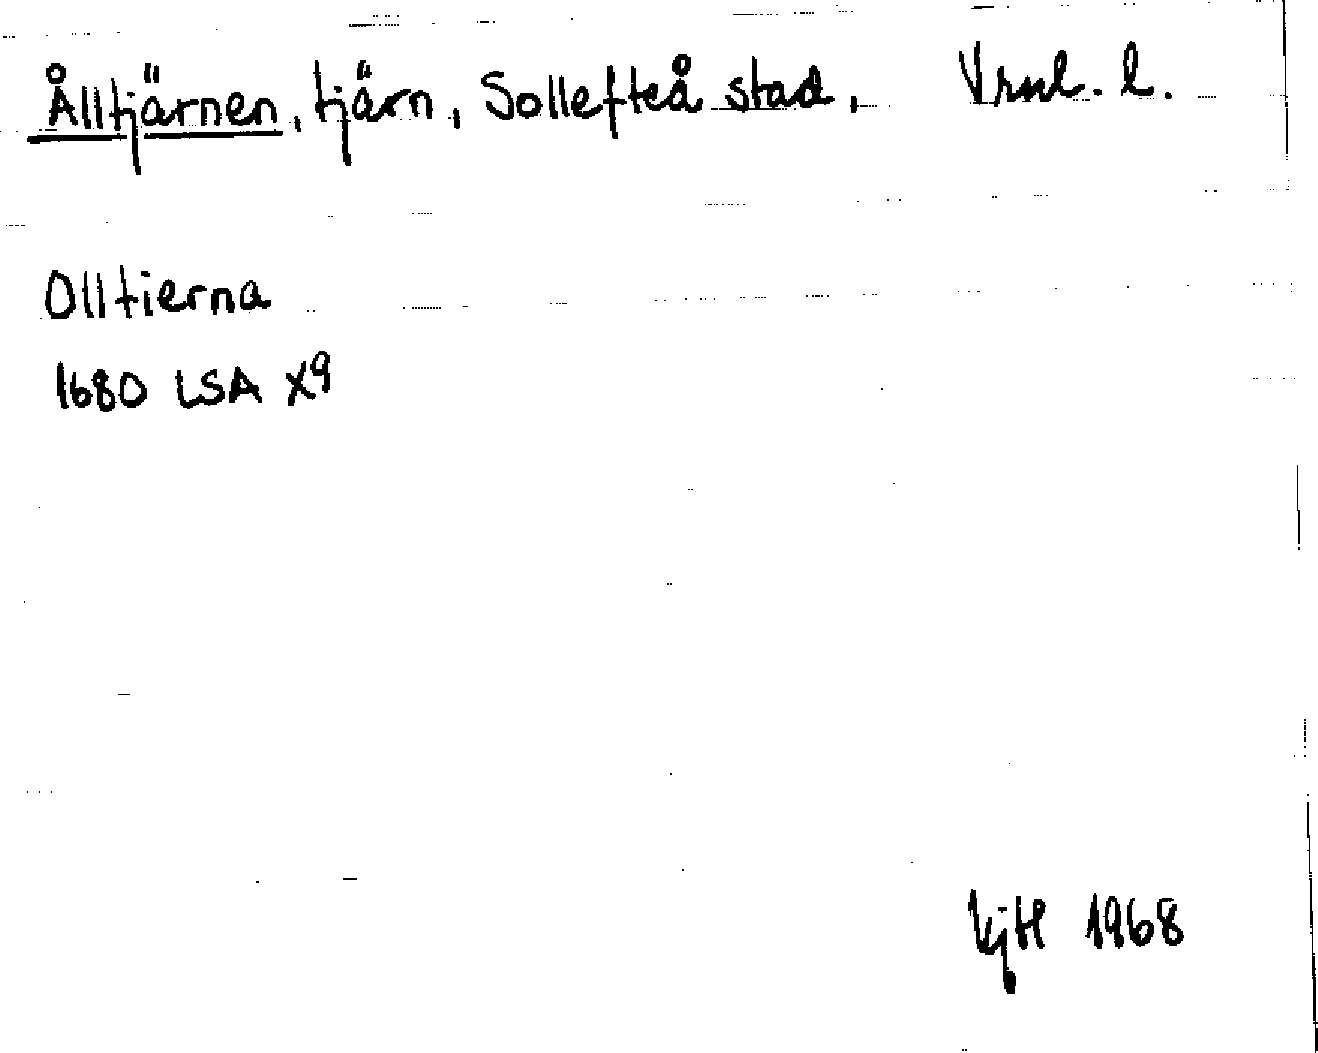 Ålltjärnen, tjärn, Sollefteå stad, Vrml. l.
Olltierna
1680 LSA X9
KjH 1968